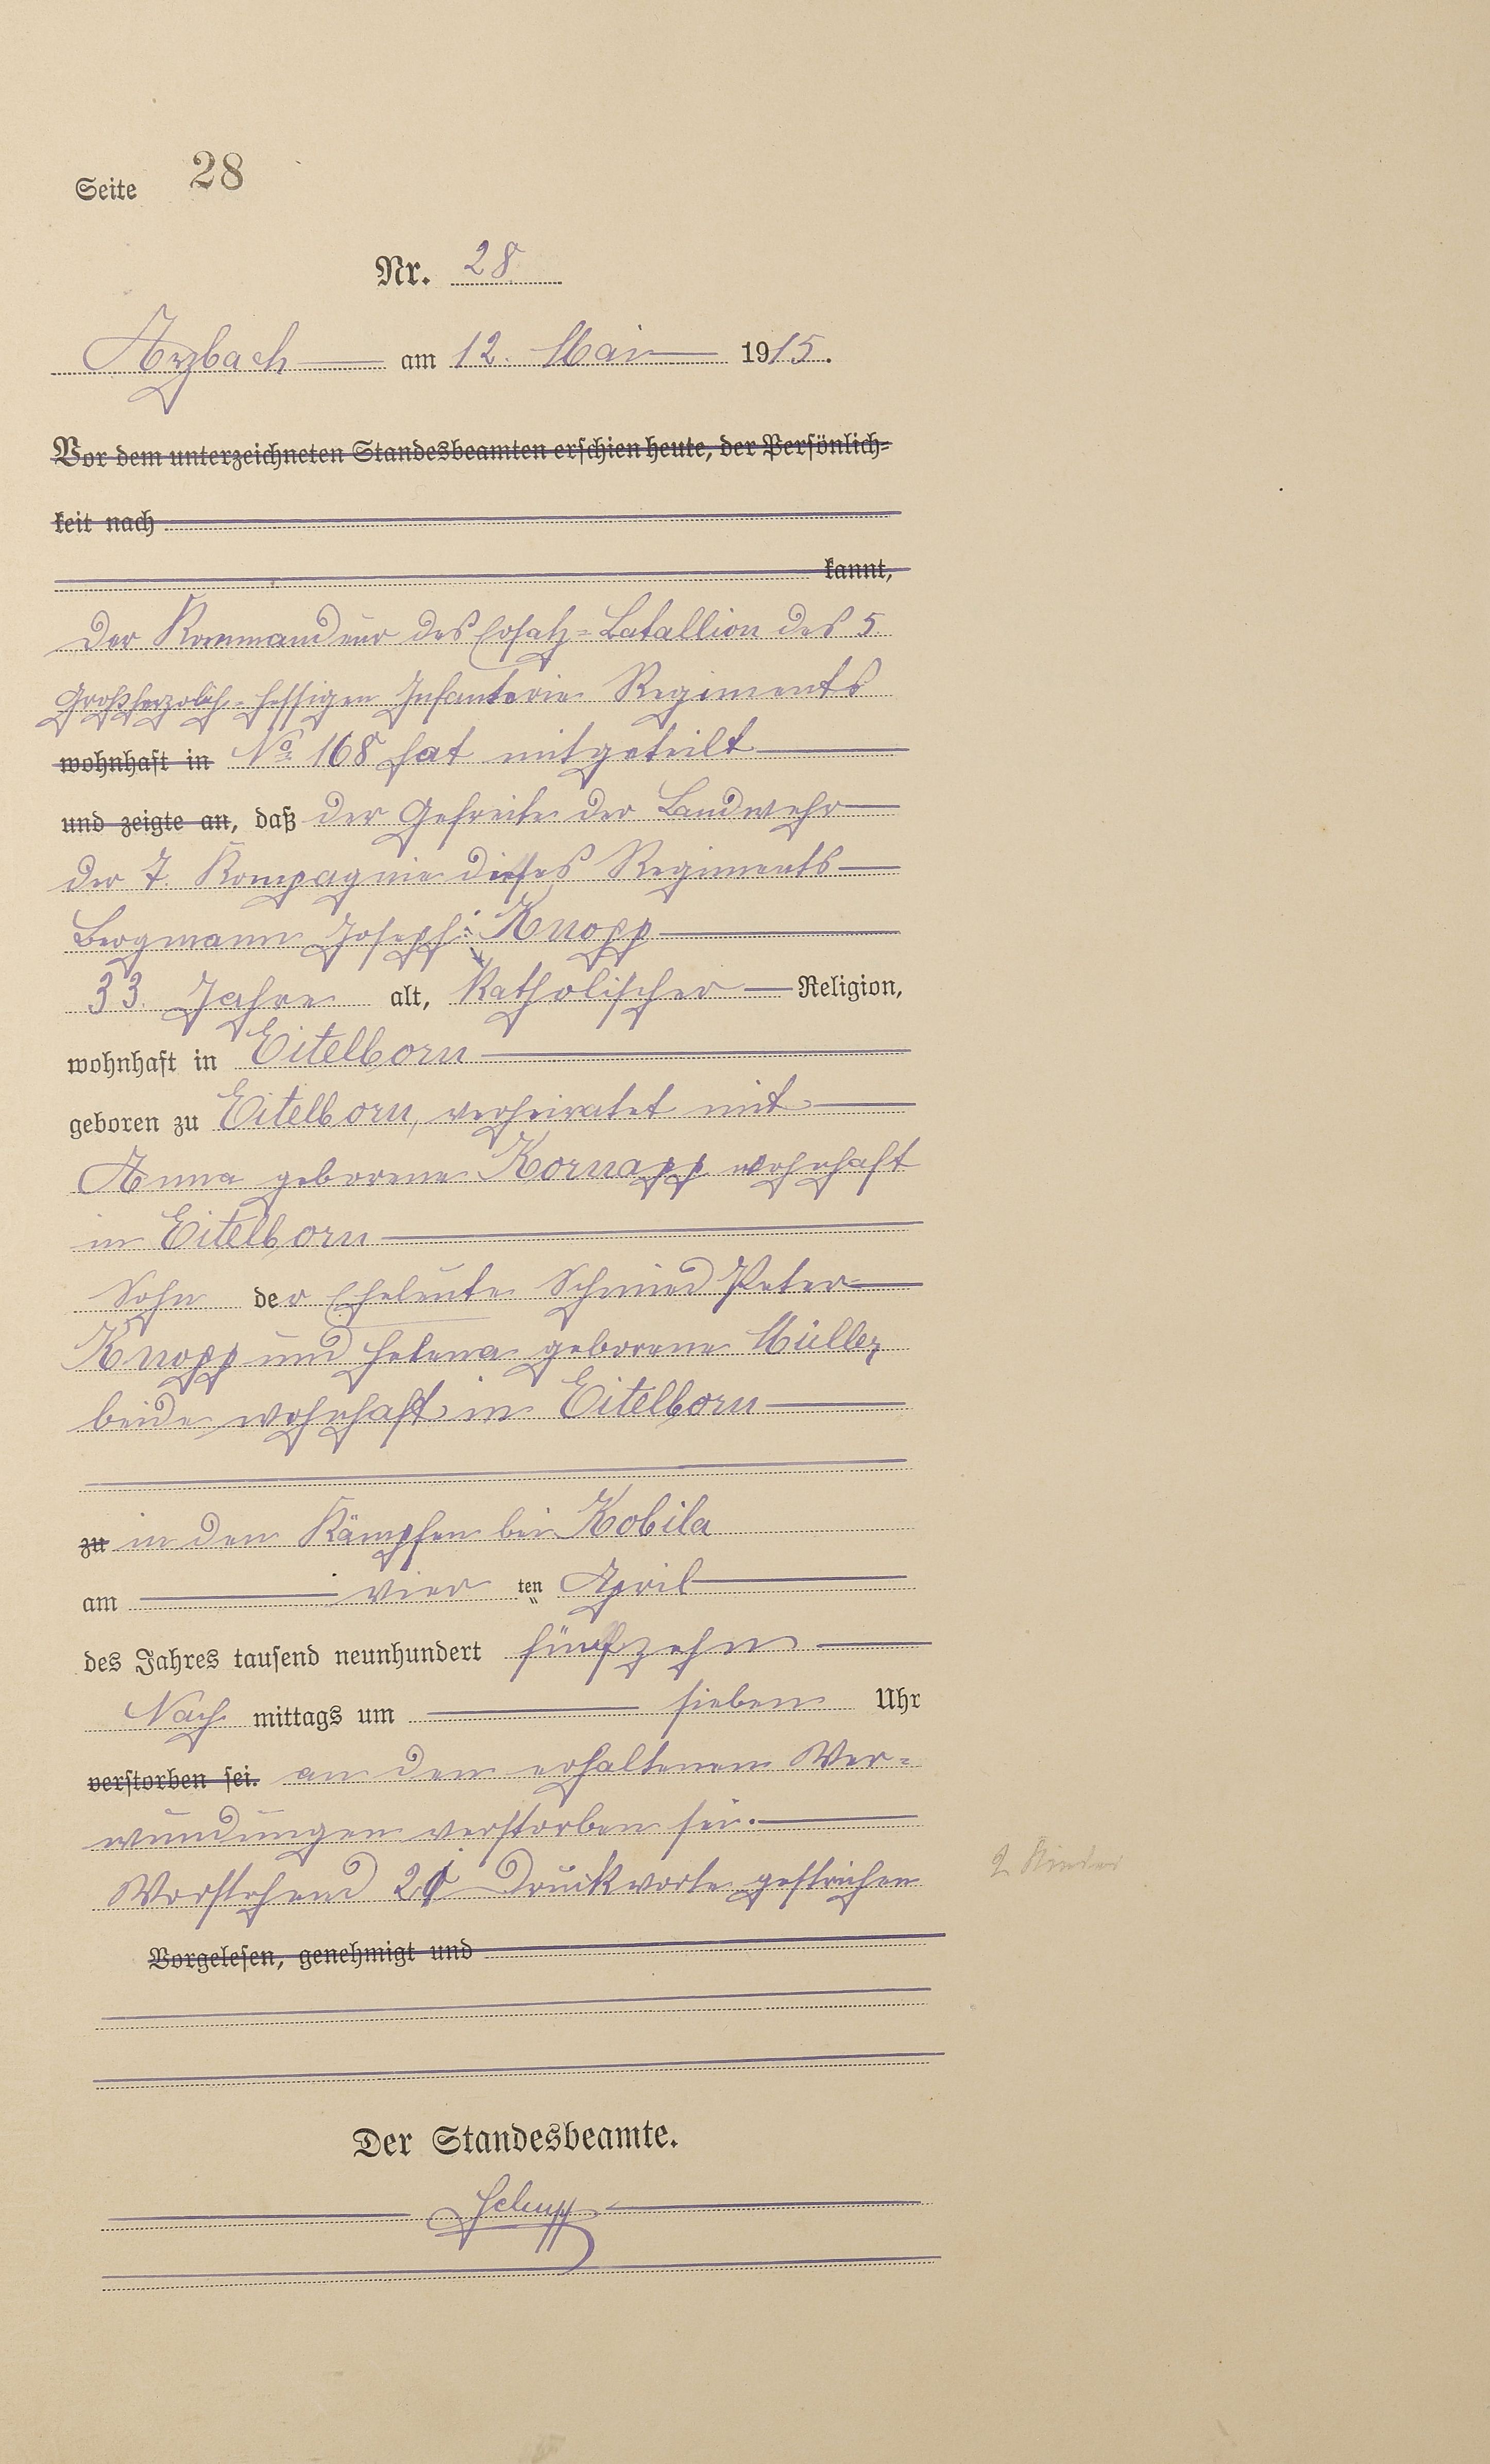 Seite 28
Nr. 28
Arzbach am 12. Mai 1915.
Vor dem unterzeichneten Standesbeamten erschien heute, der Persönlich-
keit nach
kannt,
Der Kommandeur des Ersatz-Batallion des 5.
Großherzolich-hessigen Infanterie Regiments
wohnhaft in No 168 hat mitgeteilt
und zeigte an, daß der Gefreite der Landwehr
der 7. Kompagnie dieses Regiments
Bergmann Joseph Knopp
33 Jahre alt, katholischer Religion,
wohnhaft in Eitelborn
geboren zu Eitelborn, verheiratet mit
Anna geborene Kornapp wohnhaft
in Eitelborn
Sohn der Eheleute Schmied Peter
Knopp und Helena geborene Müller,
beide wohnhaft in Eitelborn
zu in den Kämpfen bei Kobila
am vier ten April
des Jahres tausend neunhundert fünfzehn
Nach mittags um sieben Uhr
verstorben sei. an den erhaltenen Ver-
wundungen verstorben sei.
Vorstehend Druckworte gestrichen
2 Kinder
Vorgelesen, genehmigt und
Der Standesbeamte.